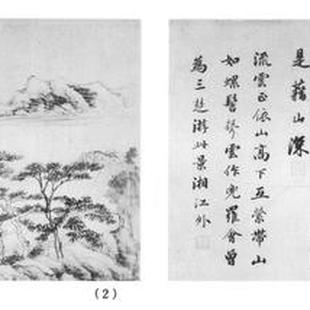 是藉山深
流雲正依山高下互縈帶山
如螺髻雲作兜羅會曾
為三楚游此景湘江外
(2)